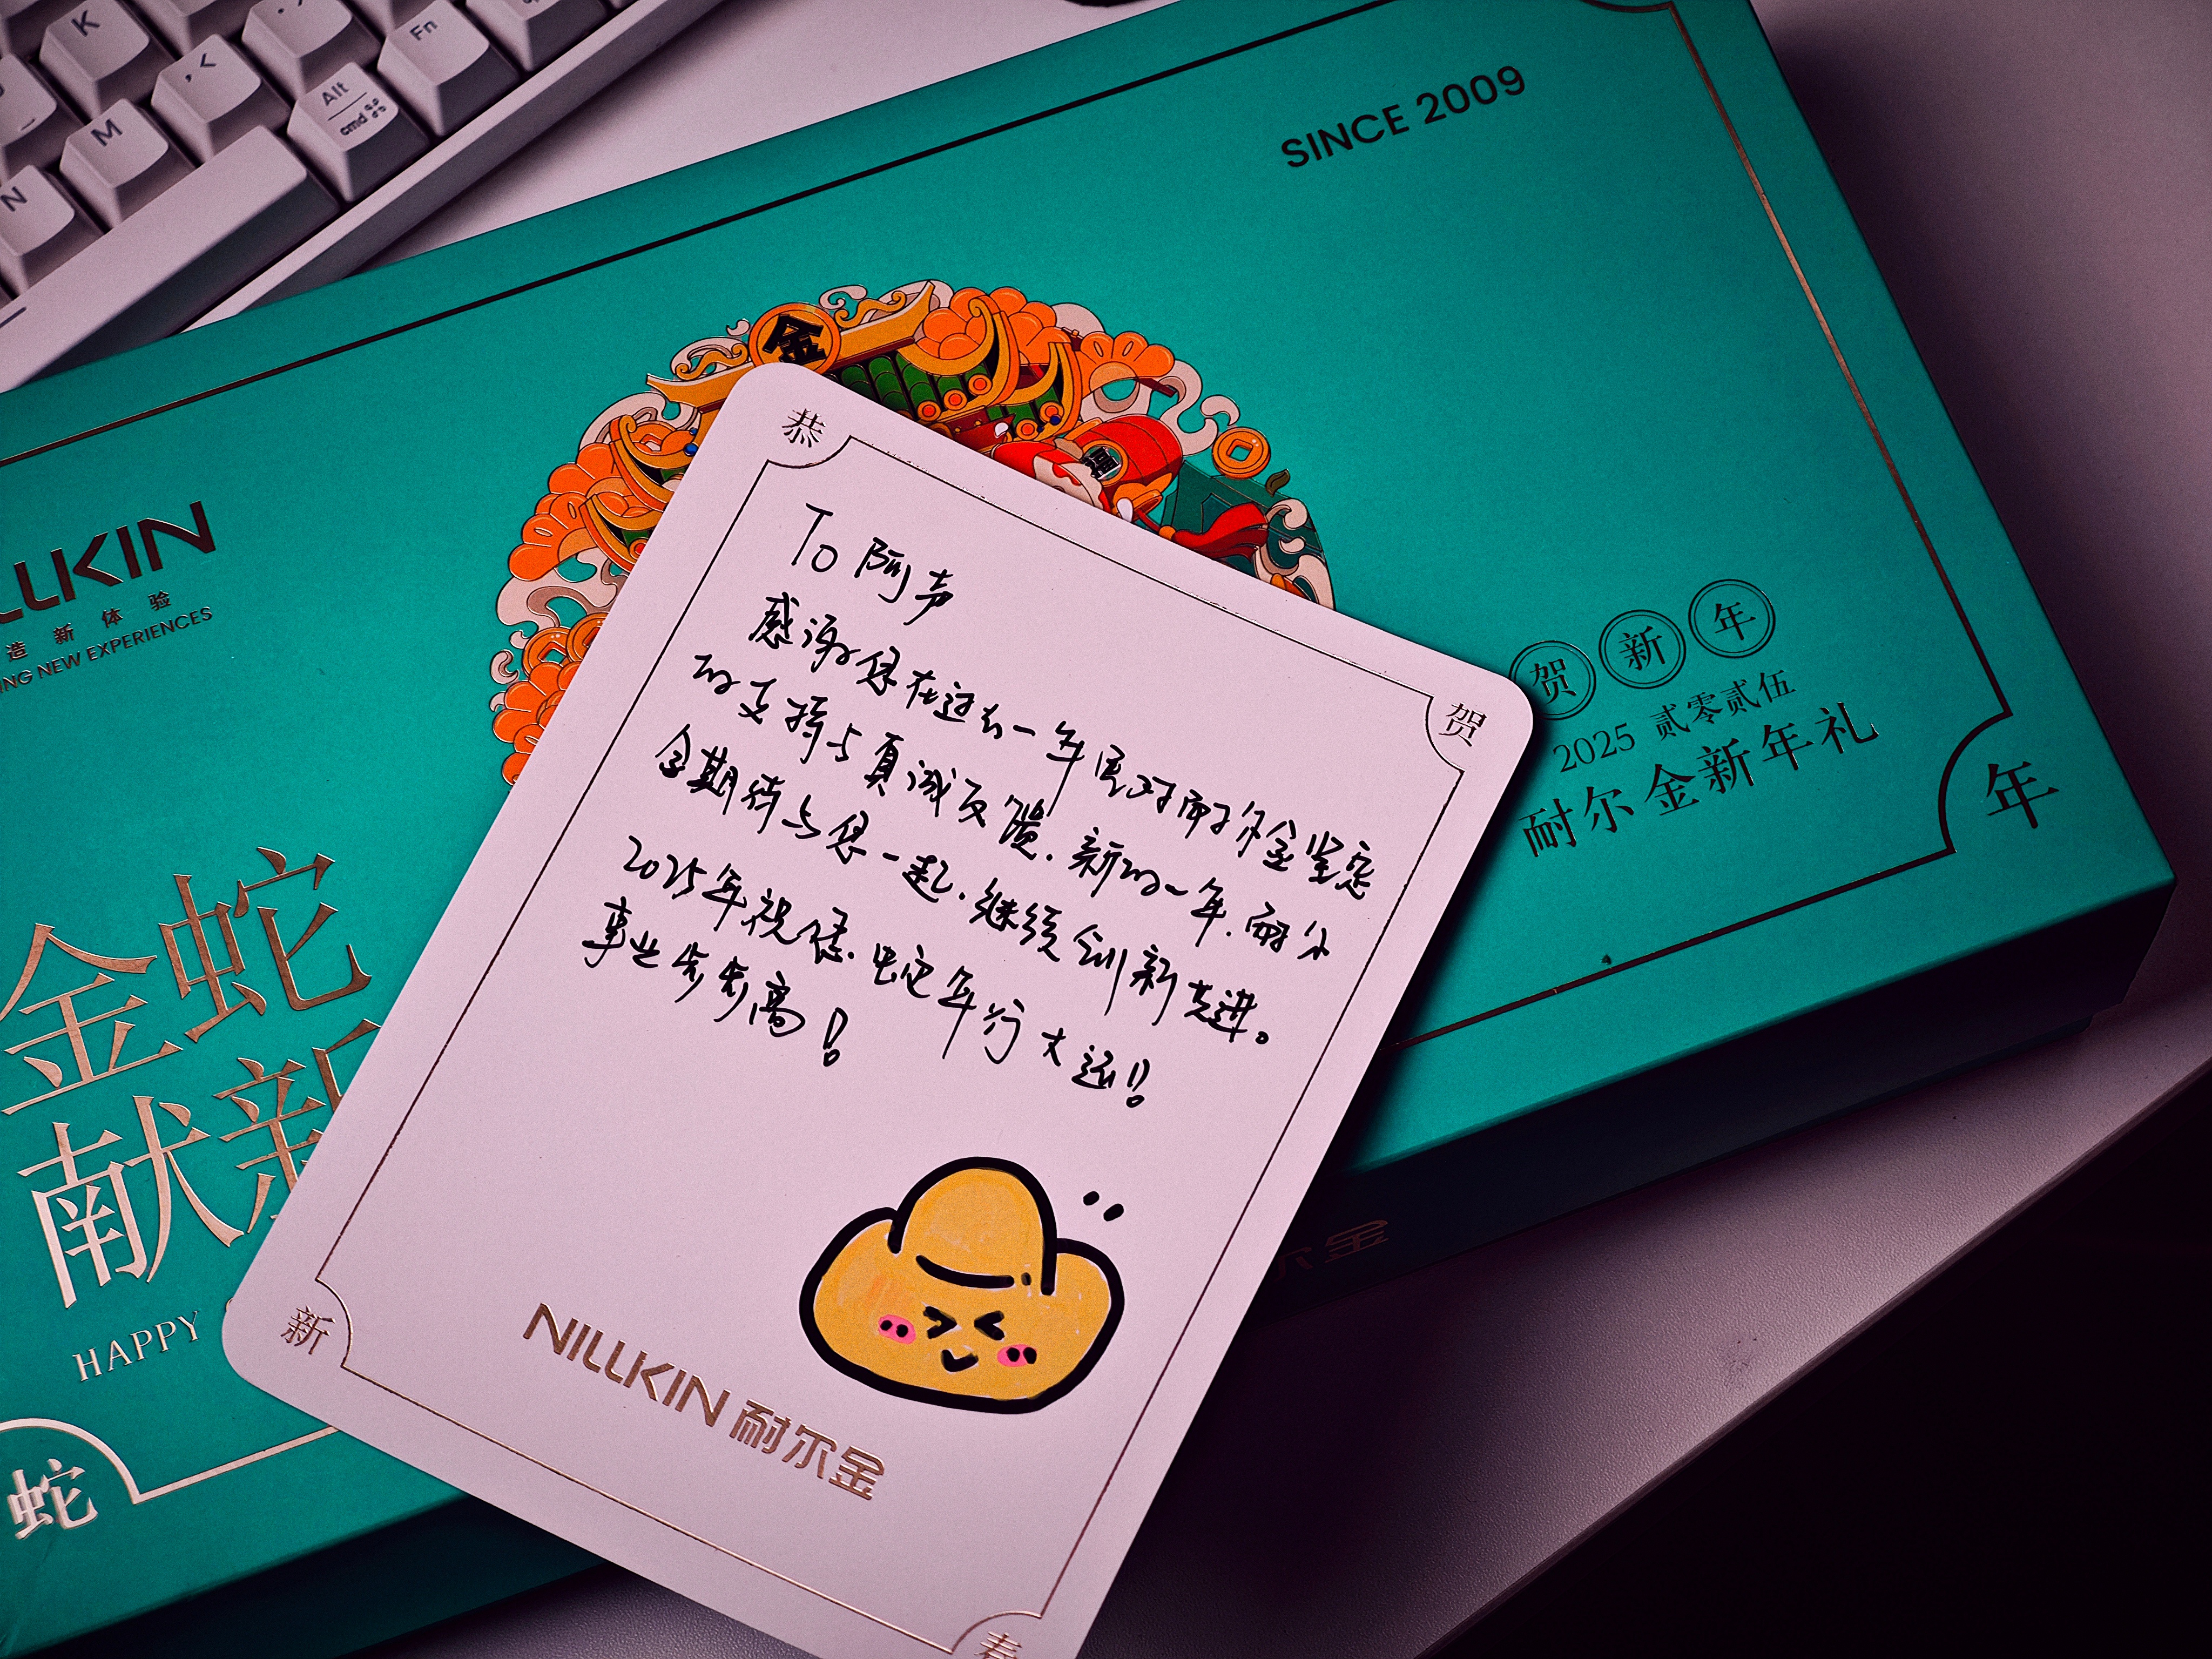 K
, <
Fn
M
Alt
cmd ⌘
N
SINCE 2009
金
福
LLKIN
造新体验
NG NEW EXPERIENCES
贺新年
2025 贰零贰伍
耐尔金新年礼
年
金蛇
献新
HAPPY
蛇
恭
贺
To 阿声
感谢您在过去一年里对耐尔金坚定
的支持与真诚反馈.新的一年.耐尔
金期待与您一起.继续创新共进。
2025年祝您.蛇年行大运!!
事业步步高!
NILLKIN 耐尔金
新
春
尔金